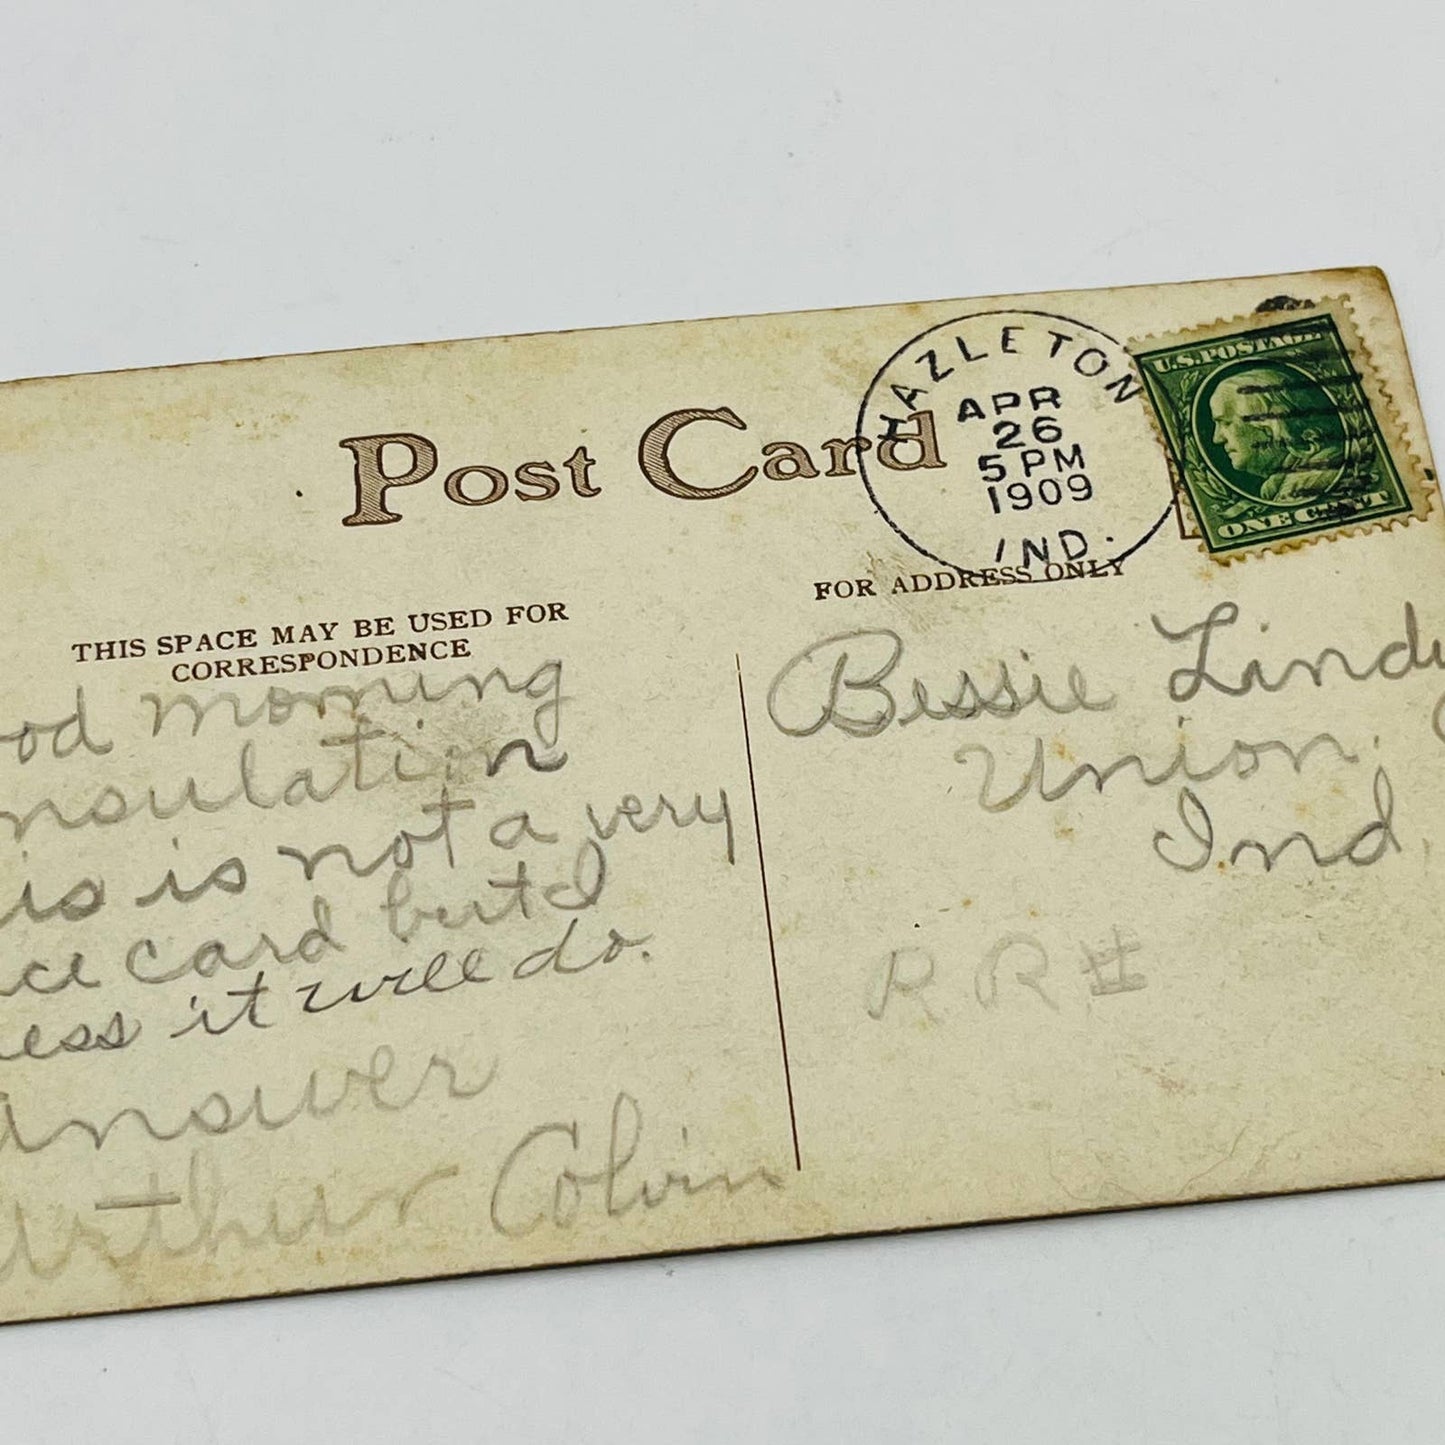 Post Card
HAZLETON
APR
26
5 PM
1909
IND.
U.S. POSTAGE
ONE CENT
THIS SPACE MAY BE USED FOR
CORRESPONDENCE
FOR ADDRESS ONLY
ood morning
nsulation
is is not a very
ce card but I
ess it will do.
answer
arthur Colvin
Bessie Lindy
Union,
Ind.
R R #